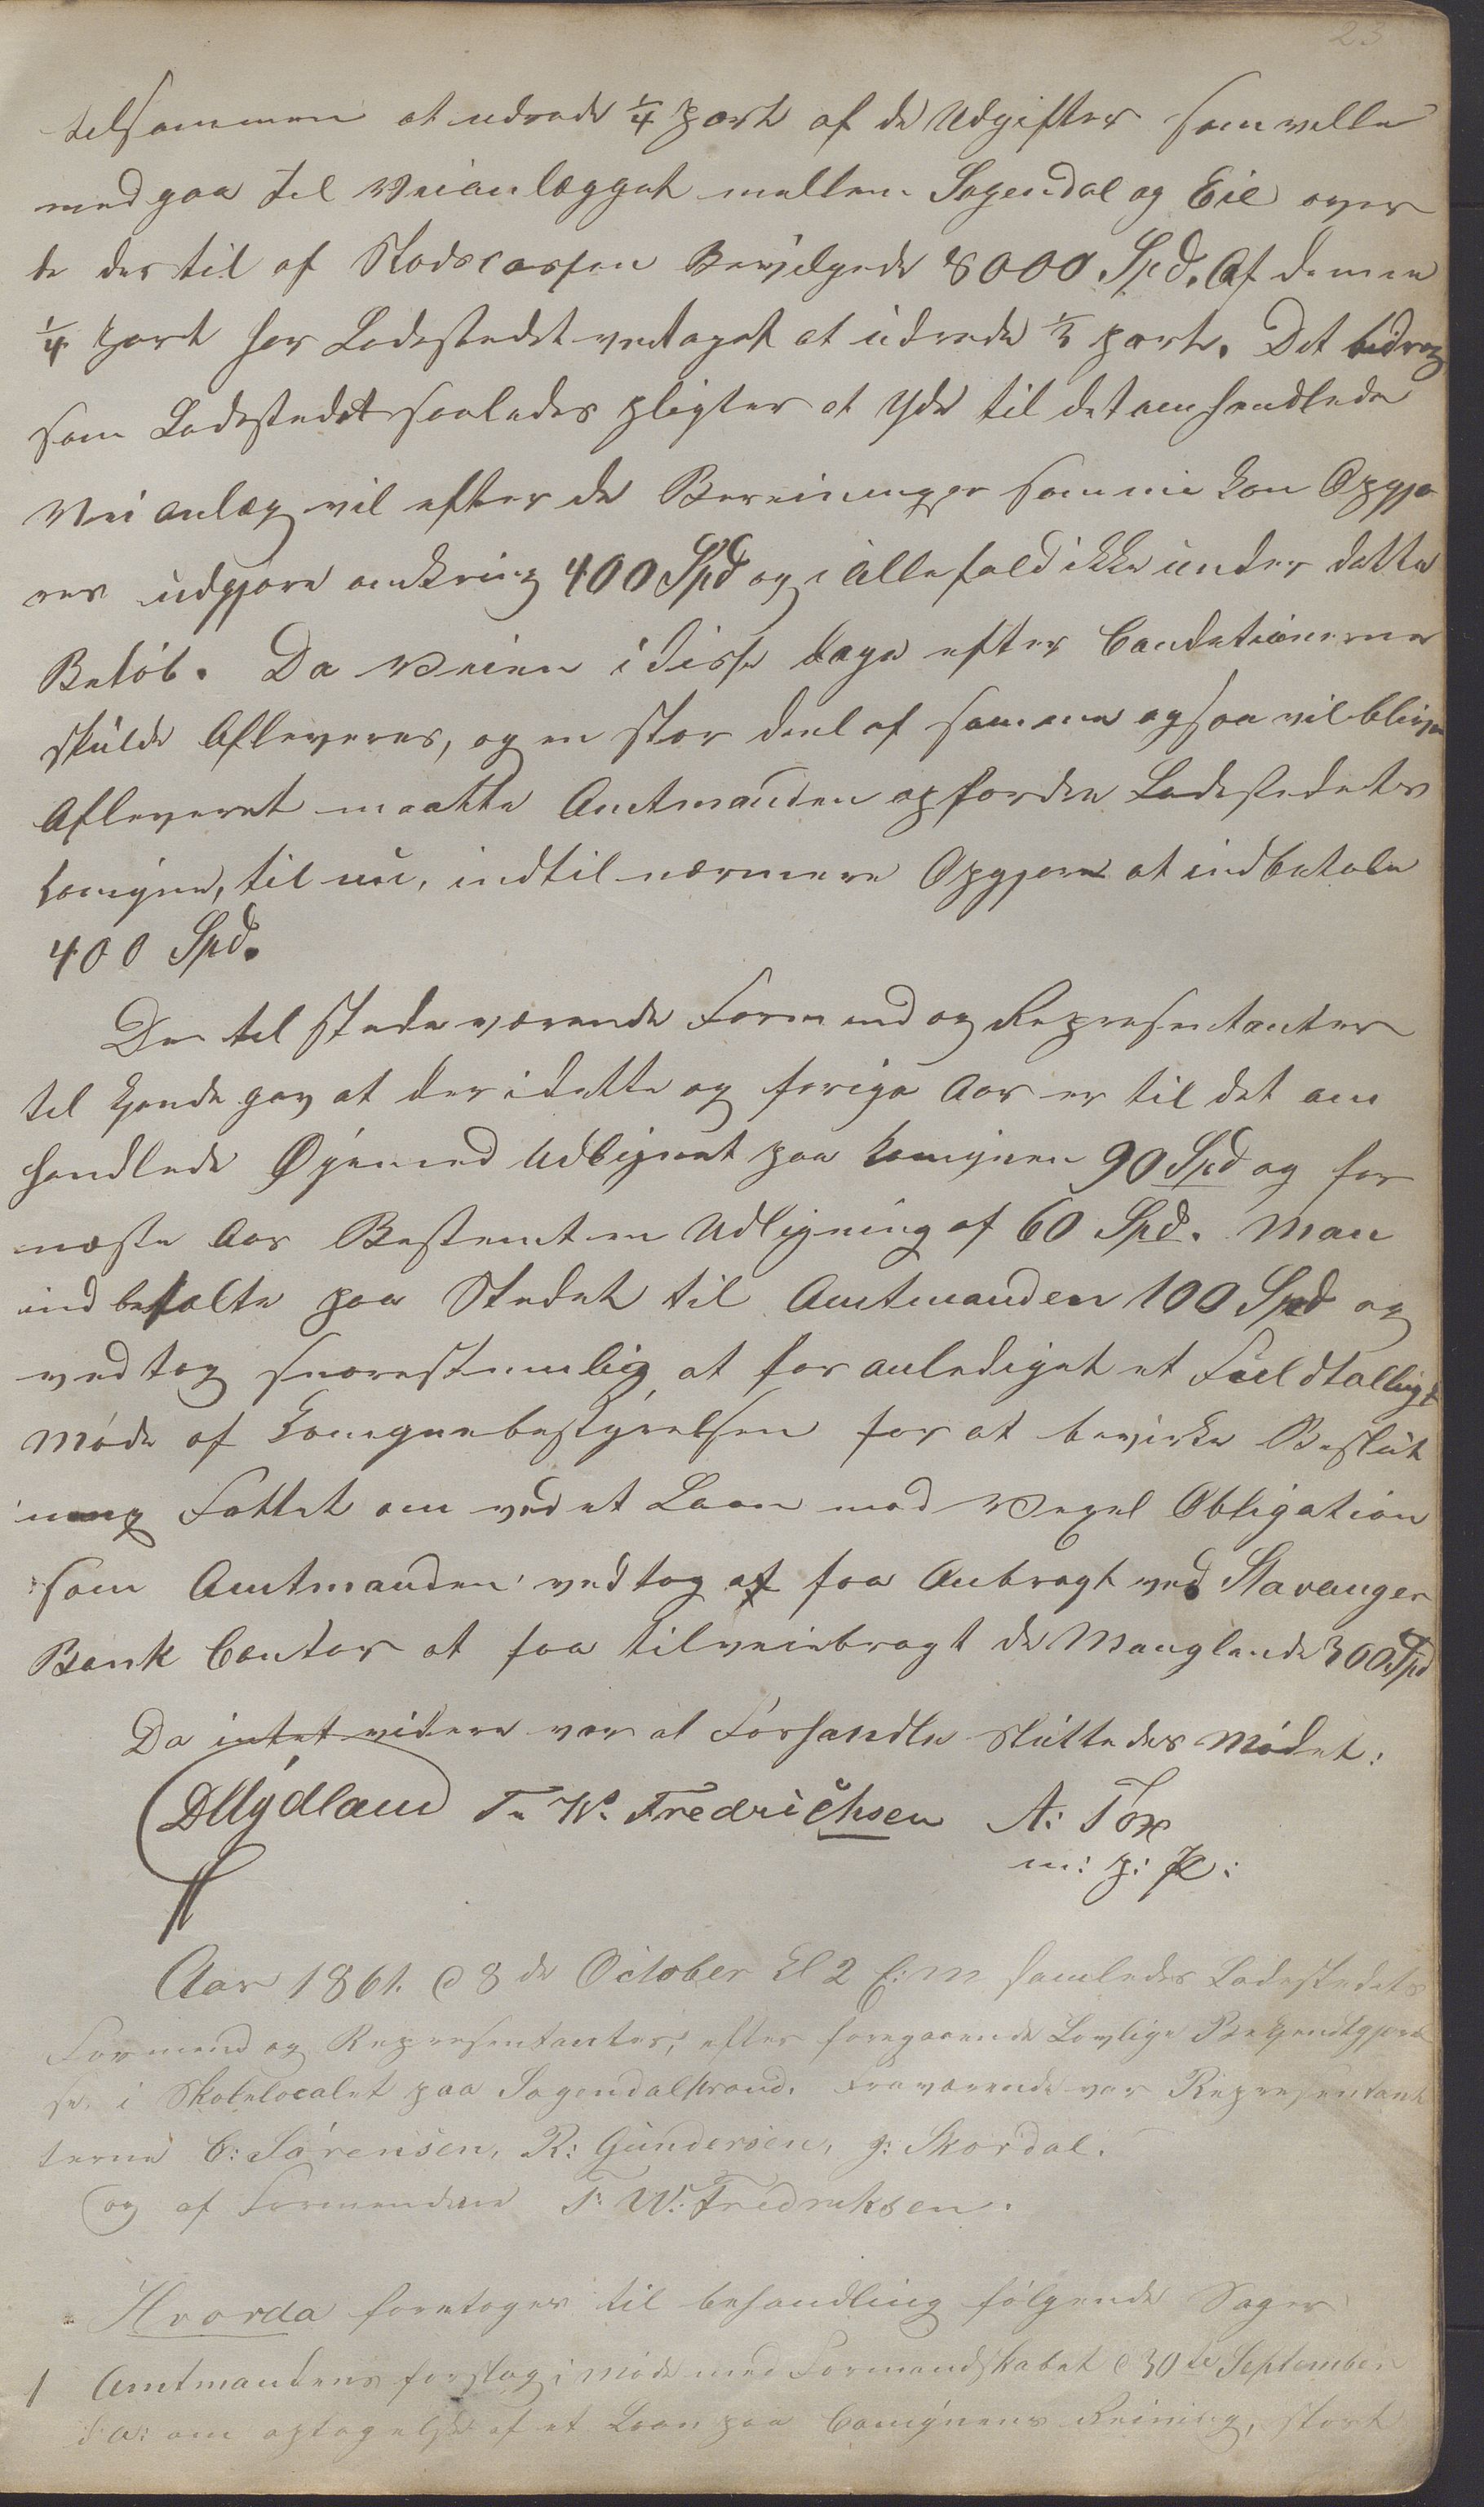 23
tilsammen at udrede 1/4 part af de Udgifter som ville
medgaa til Veianlægget mellem Sogendal og Eie over
de dertil af Stadscassen Bevilgede 8000 Spd. Af denne
1/4 part har Ladestedet vedtaget at udrede 1/3 part. Det bidrag
som Ladestedet saaledes pligter at yde til det omhandlede
Veianlæg vil efter de Bereininger som nu kan Opgjø
res udgjøre omkring 400 Spd og i alle fald ikke under dette
Beløb. Da Veien i disse dage efter Conditionerne
skulde Afleveres, og en stor deel af samme ogsaa vil blive
Afleveret maatte Amtmanden opfordre Ladestedets
Comyne, til nu, indtil nærmere Opgjøre at indbetale
400 Spd.
De til stedeværende Formend og Representanter
til kjende gav at der i dette og forige Aar er til det om
handlede Øyemed Udlignet paa Comynen 90 Spd og for
næste Aar Bestemt en Udligning af 60 Spd. Man
indbetalte paa Stedet til Amtmanden 100 Spd og
vedtog snarestemlig at foranlediget et Fuldtalligt
Møde af Comynebestyrelsen for at bevirke Beslut
ning Fattet om ved et Laan mod Vexel Obligation
som Amtmanden vedtog at faa Anbragt ved Stavanger
Bank Contor at faa tilveiebragt de Manglende 300 Spd
Da intet videre var at Forhandle sluttedes Mødet:
DMydland T. W. Fredrichsen A: Tox
m: p: P:
Aar 1861. d 8de October Kl 2 E:M samledes Ladestedets
Formend og Representanter, efter foregaaende Lovlige Bekjendtgjørel
se i Skolelocalet paa Sogendalstrand. Fraværende var Representant
terne C: Sørensen, R: Gundersen, J: Skordal.
og af Formendene T: W: Fredriksen.
Hvorda foretoges til behandling følgende Sager
1 Amtmandens forslag i Møde med Formandskabet d 30te September
d. A: om optagelse af et Laan paa Comynens Reining, stort